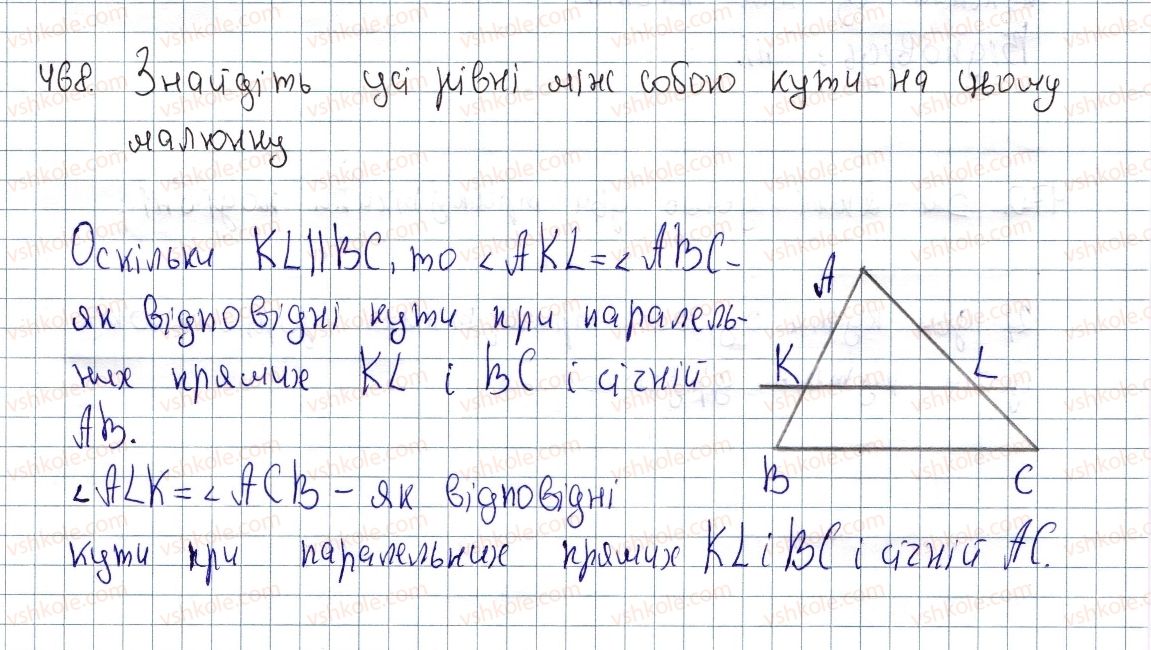 468. Знайдіть усі рівні між собою кути на цьому
малюнку
Оскільки KL||BC, то ∠AKL=∠ABC-
як відповідні кути при паралель-
них прямих KL і BC і січній
AB.
∠ALK=∠ACB - як відповідні
кути при паралельних прямих KL і BC і січній AC.
A
K
L
B
C